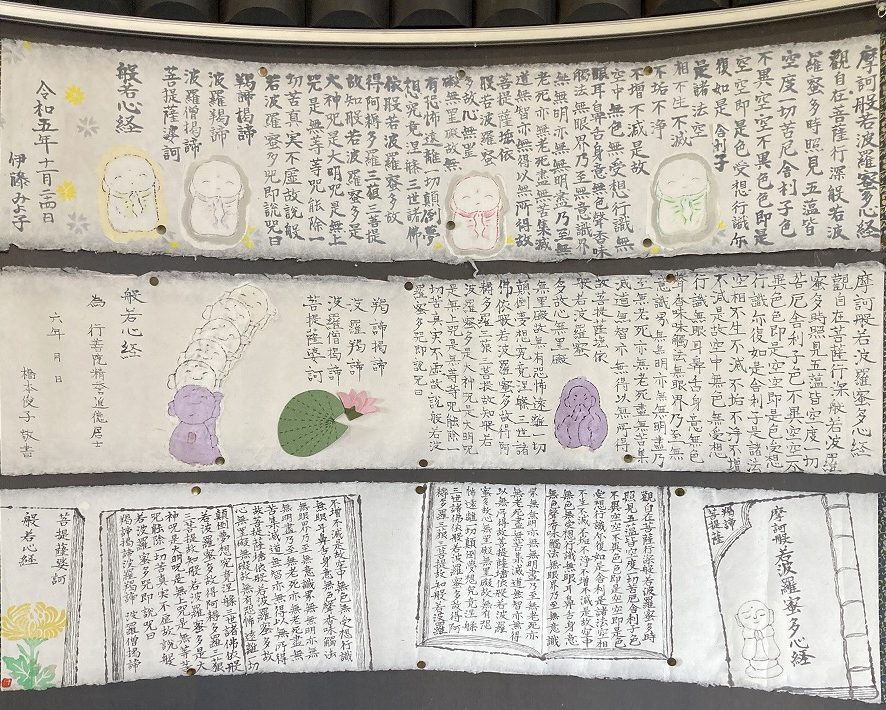 摩訶般若波羅蜜多心経
觀自在菩薩行深般若波
羅蜜多時照見五蘊皆
空度一切苦厄舎利子色
不異空空不異色色即是
空空即是色受想行識亦
復如是舎利子
是諸法空
相不生不滅
不垢不浄
不増不減是故
空中無色無受想行識無
眼耳鼻舌身意無色聲香味
觸法無眼界乃至無意識界
無無明亦無無明盡乃至無
老死亦無老死盡無苦集滅
道無智亦無得以無所得故
菩提薩埵依
般若波羅蜜
多故心無罣
礙無罣礙故無
有恐怖遠離一切顛倒夢
想究竟涅槃三世諸佛
依般若波羅蜜多故
得阿耨多羅三藐三菩提
故知般若波羅蜜多是
大神呪是大明呪是無上
呪是無等等呪能除一
切苦真実不虚故説般
若波羅蜜多呪即説呪曰
羯諦羯諦
波羅羯諦
波羅僧羯諦
菩提薩婆訶
般若心経
令和五年十一月二四日
伊藤みよ子
摩訶般若波羅蜜多心経
觀自在菩薩行深般若波羅
蜜多時照見五蘊皆空度一切
苦厄舎利子色不異空空不
異色色即是空空即是色受想
行識亦復如是舎利子是諸法
空相不生不滅不垢不浄不増
不減是故空中無色無受想
行識無眼耳鼻舌身意無色
聲香味觸法無眼界乃至無
意識界無無明亦無無明盡乃
至無老死亦無老死盡無苦集
滅道無智亦無得以無所得
故菩提薩埵依
般若波羅蜜
多故心無罣礙
無罣礙故無有恐怖遠離一切
顛倒夢想究竟涅槃三世諸
佛依般若波羅蜜多故得阿
耨多羅三藐三菩提故知般若
波羅蜜多是大神呪是大明呪
是無上呪是無等等呪能除一
切苦真実不虚故説般若波
羅蜜多呪即説呪曰
羯諦羯諦
波羅羯諦
波羅僧羯諦
菩提薩婆訶
般若心経
為 行善院精誉道信居士
六年 月 日
橋本俊子 敬書
摩訶般若波羅蜜多心経
羯諦
菩提薩
觀自在菩薩行深般若波羅蜜多時
照見五蘊皆空度一切苦厄舎利子色
不異空空不異色色即是空空即是色
受想行識亦復如是舎利子是諸法空相
不生不滅不垢不浄不増不減是故空中
無色無受想行識無眼耳鼻舌身意
無色聲香味觸法無眼界乃至無意識
界無無明亦無無明盡乃至無老死亦
無老死盡無苦集滅道無智亦無得
以無所得故菩提薩埵依般若波羅
蜜多故心無罣礙無罣礙故無有恐
怖遠離一切顛倒夢想究竟涅槃
三世諸佛依般若波羅蜜多故得阿
耨多羅三藐三菩提故知般若波羅
不増不減是故空中無色無受想行識
無眼耳鼻舌身意無色聲香味觸法
無眼界乃至無意識界無無明亦
無無明盡乃至無老死亦無老死盡無
苦集滅道無智亦無得以無所得
故菩提薩埵依般若波羅蜜多故
心無罣礙無罣礙故無有恐怖遠離一切
顛倒夢想究竟涅槃三世諸佛依般
若波羅蜜多故得阿耨多羅三藐
三菩提故知般若波羅蜜多是大
神呪是大明呪是無上呪是無等等
呪能除一切苦真実不虚故説般
若波羅蜜多呪即説呪曰
羯諦羯諦波羅羯諦 波羅僧羯諦
菩提薩婆訶
般若心経